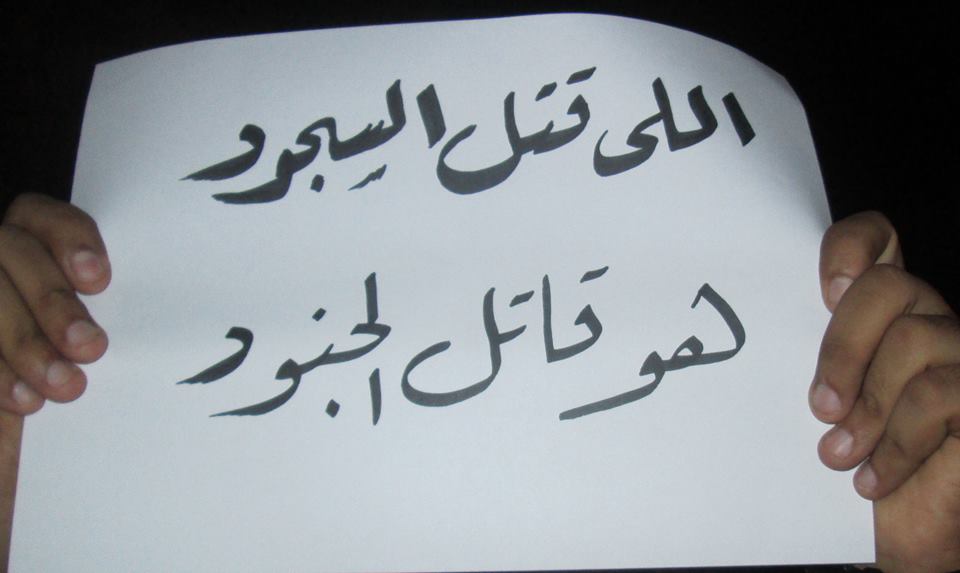 اللى قتل السجود
هو قاتل الجنود